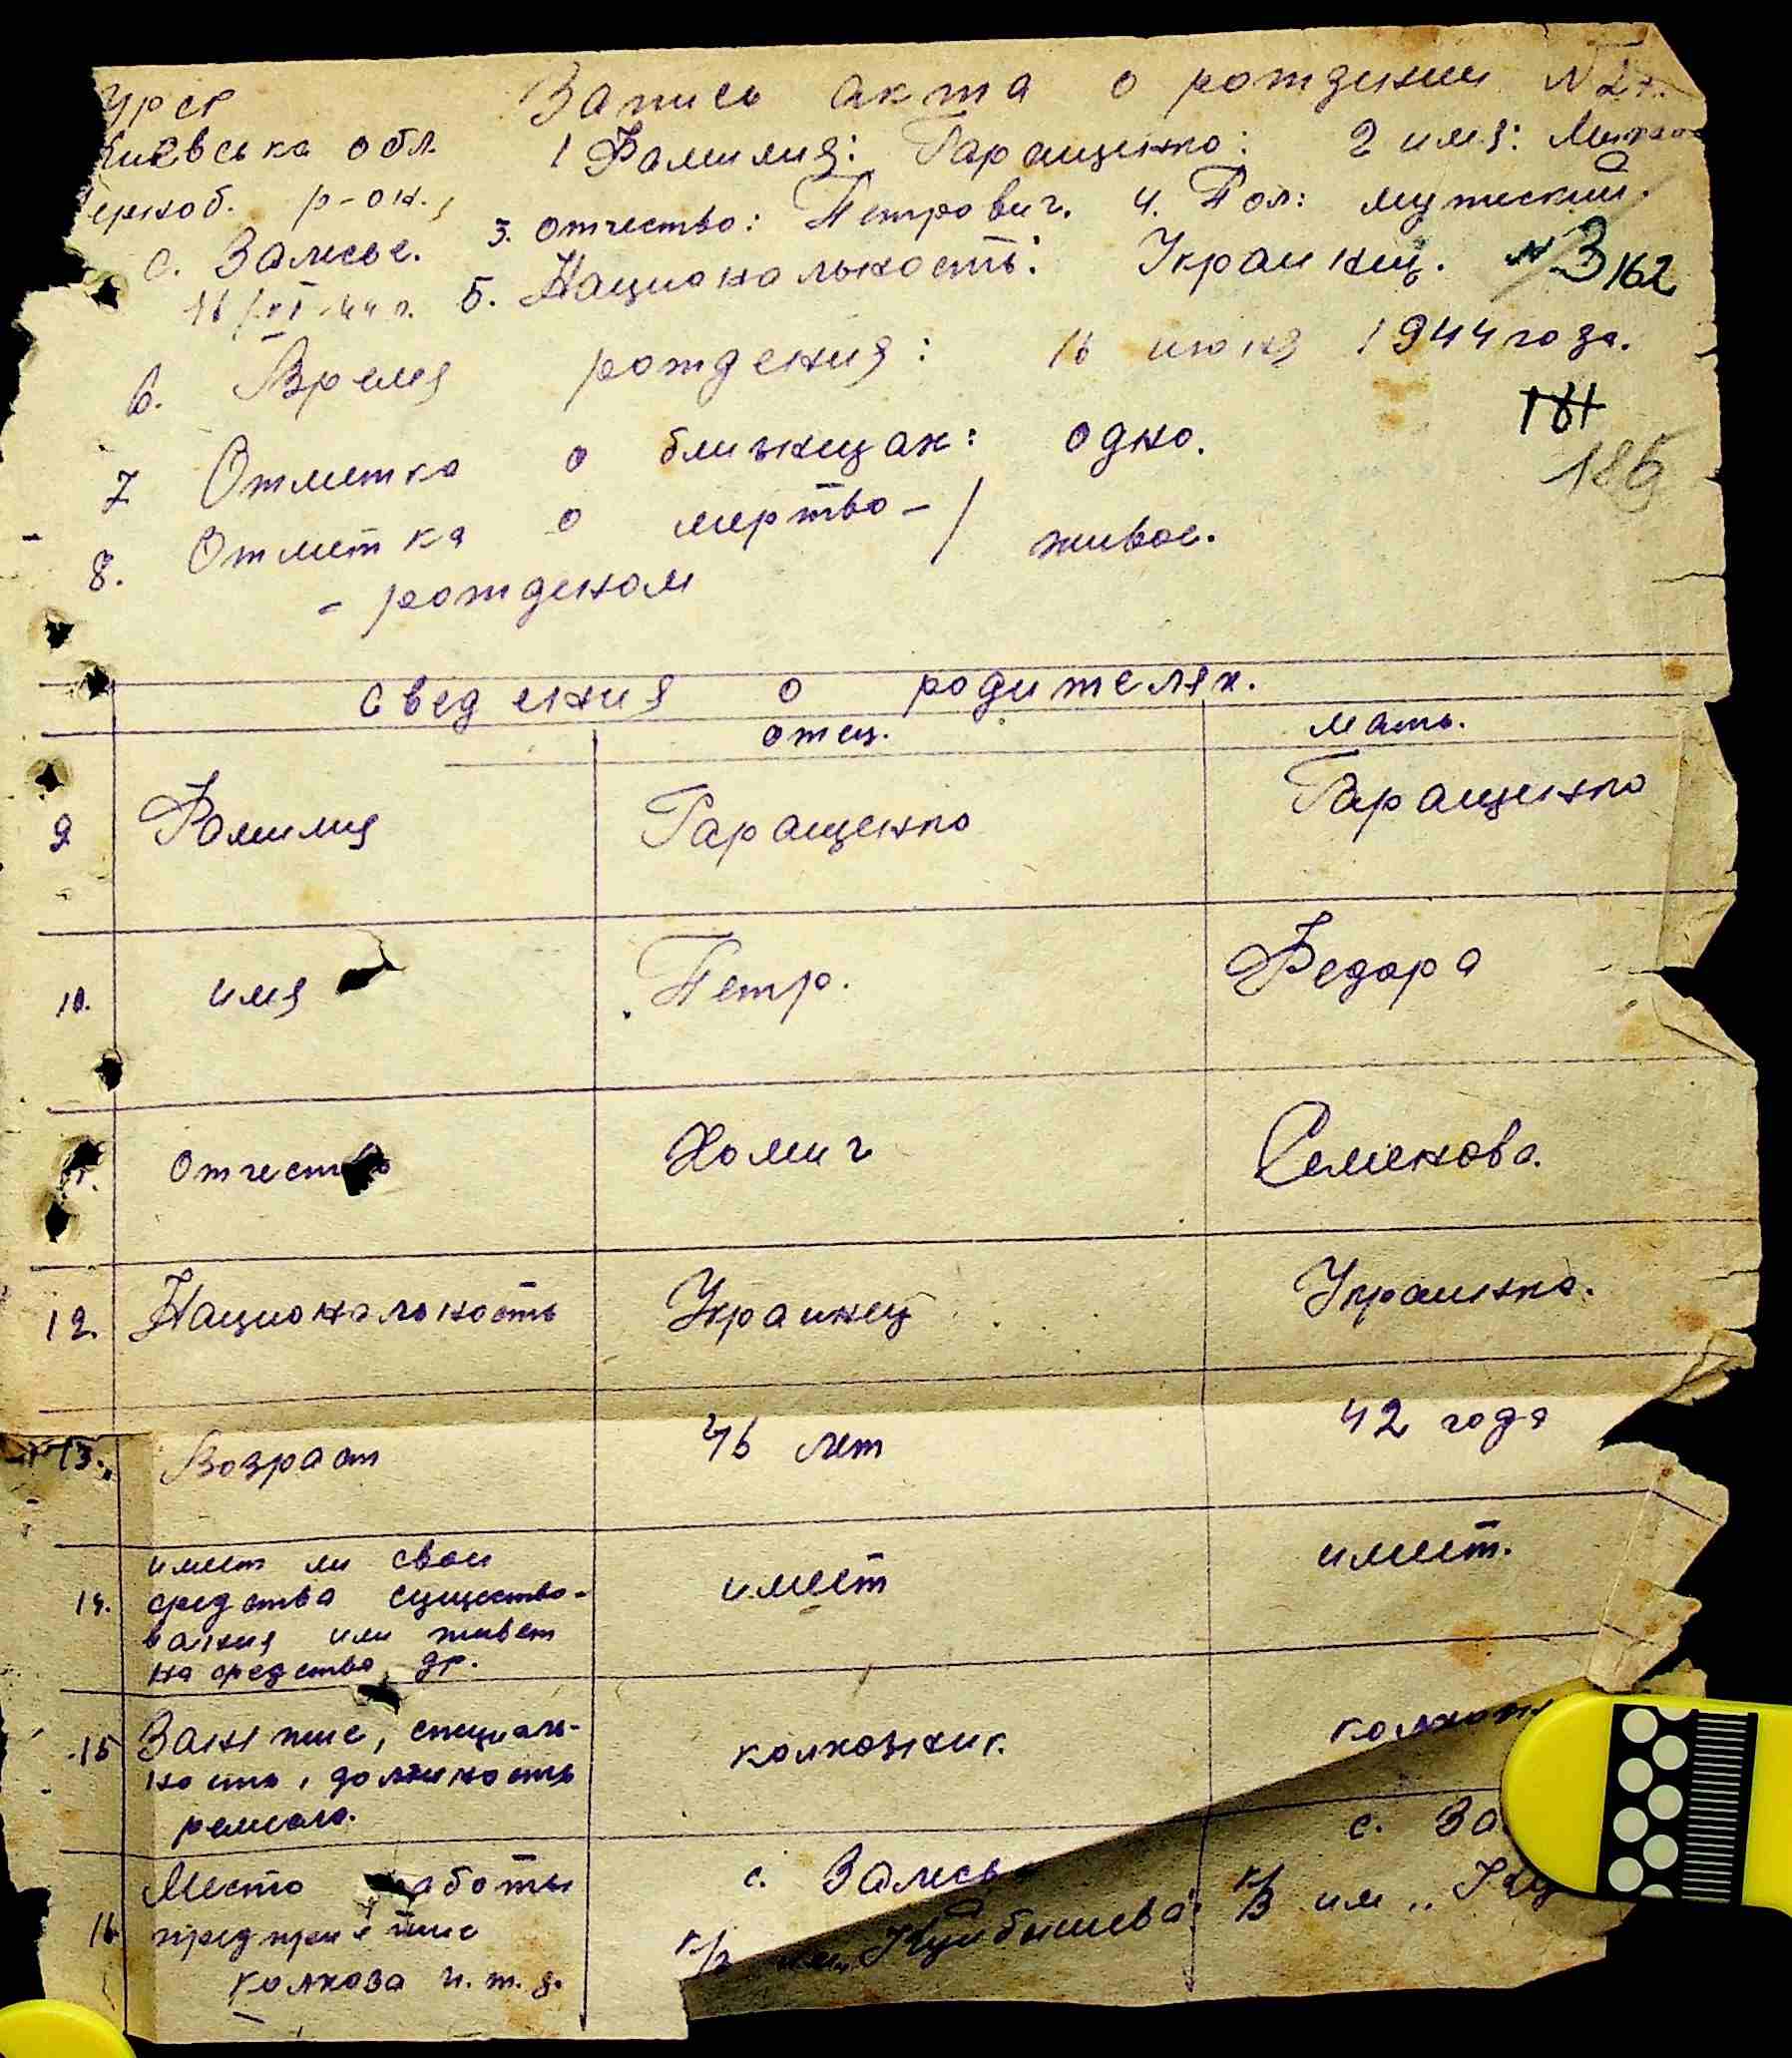 УРСР Запись акта о рождении №
Киевська обл. 1 Фамилия: Гаращенко: 2 имя:
Черноб. р-он., 3. Отчество: Петрович. 4. Пол: мужский.
с. Залесье. 5. Национальность: Украинец. № 3162
16/VI-44 г.
6. Время рождения: 16 июня 1944 года.
181
7 Отметка о близнецах: одно.
186
8. Отметка о мертво- / живое.
- рожденом
Сведения о родителях.
отец. мать.
9 Фамилия Гаращенко Гаращенко
10. имя Петр. Федора
11. Отчество Хомич Семенова.
12. Национальность Украинец Украинка.
13. Возраст 46 лет 42 года
14. имеет ли свои
средства существо-
вания или живет
на средства др. имеет имеет.
15 Занятие, специаль-
ность, должность
ремесло. колхозник.
16 Место работы
предприятие
колхоза и.т.д. с. Залесье
к/з им. Куйбышева. с. За
к/з им „Куй